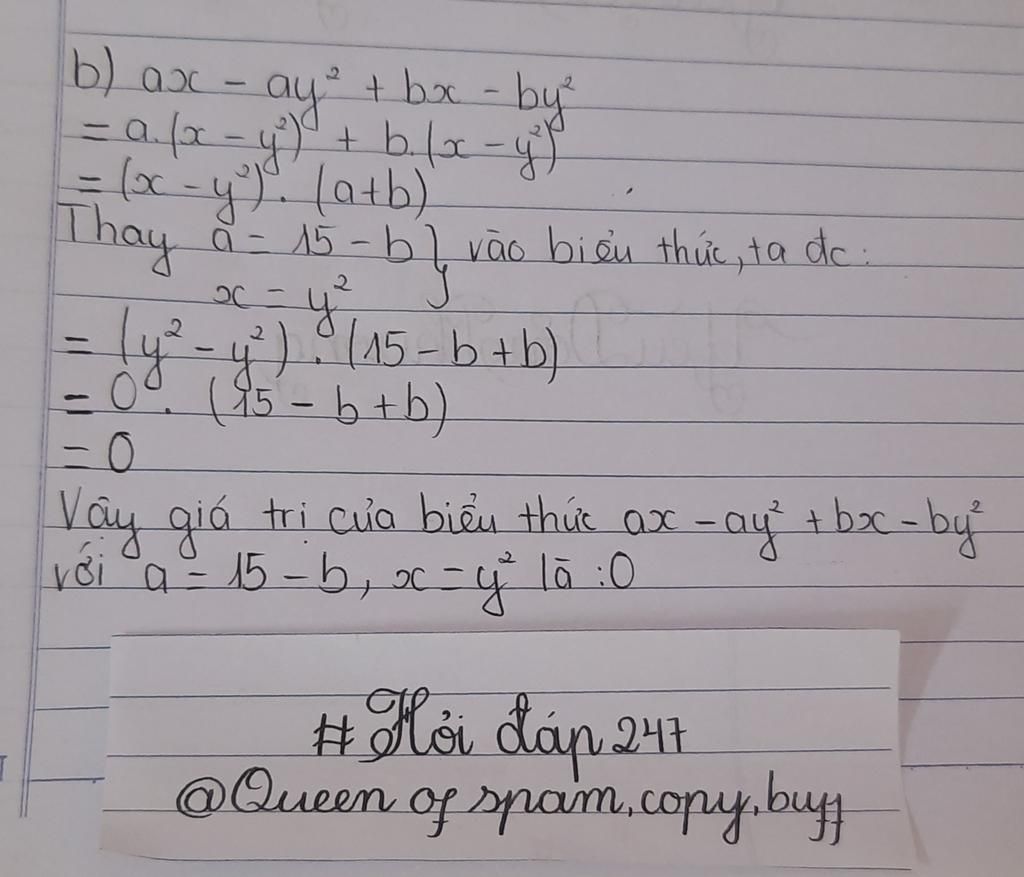 b) ax - ay² + bx - by²
= a.(x - y²) + b.(x - y²)
= (x - y²). (a+b)
Thay a = 15 - b } vào biểu thức, ta đc:
x = y²
= (y² - y²) . (15 - b + b)
= 0 . (15 - b + b)
= 0
Vậy giá trị của biểu thức ax - ay² + bx - by²
với a = 15 - b, x = y² là : 0
# Hỏi đáp 247
@Queen of spam, copy, buff